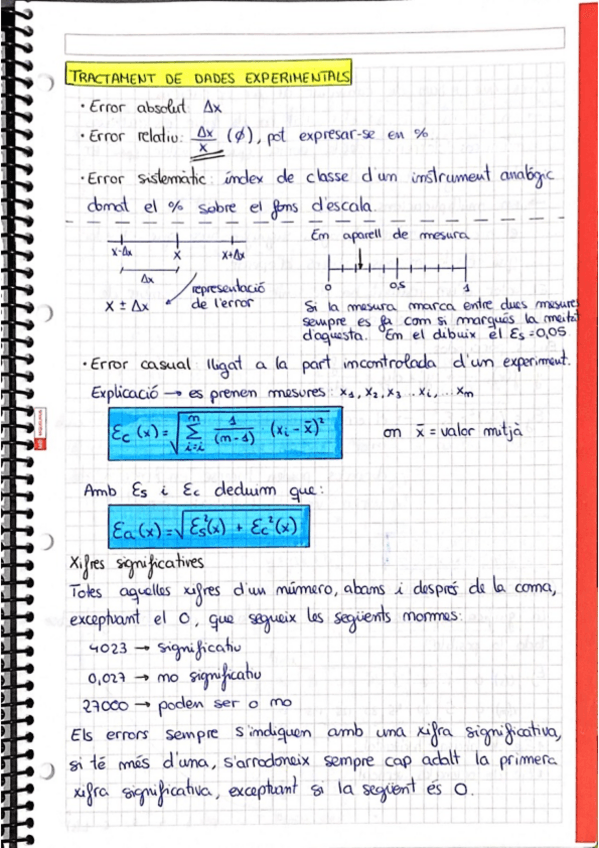 TRACTAMENT DE DADES EXPERIMENTALS
· Error absolut Δx
· Error relatiu: Δx/x (ø), pot expresar-se en %
· Error sistemàtic: índex de classe d'un instrument analògic
donat el % sobre el fons d'escala.
x-Δx x x+Δx
Δx
x ± Δx
representació
de l'error
En aparell de mesura
0 0,5 1
Si la mesura marca entre dues mesures
sempre es fa com si marqués la meitat
d'aquesta. En el dibuix el Es=0,05
· Error casual lligat a la part incontrolada d'un experiment.
Explicació → es prenen mesures: x₁, x₂, x₃ .. xᵢ, ... xₙ
Ec (x) = √ n Σ i=i 1/(n-1) (xᵢ - x̄)² on x̄ = valor mitjà
Amb Es i Ec deduim que:
Ea (x) = √ Es²(x) + Ec²(x)
Xifres significatives
Totes aquelles xifres d'un número, abans i després de la coma,
exceptuant el 0, que segueix les següents normes:
4023 → significatiu
0,027 → no significatiu
27000 → poden ser o no
Els errors sempre s'indiquen amb una xifra significativa,
si té més d'una, s'arrodoneix sempre cap adalt la primera
xifra significativa, exceptuant si la següent és 0.